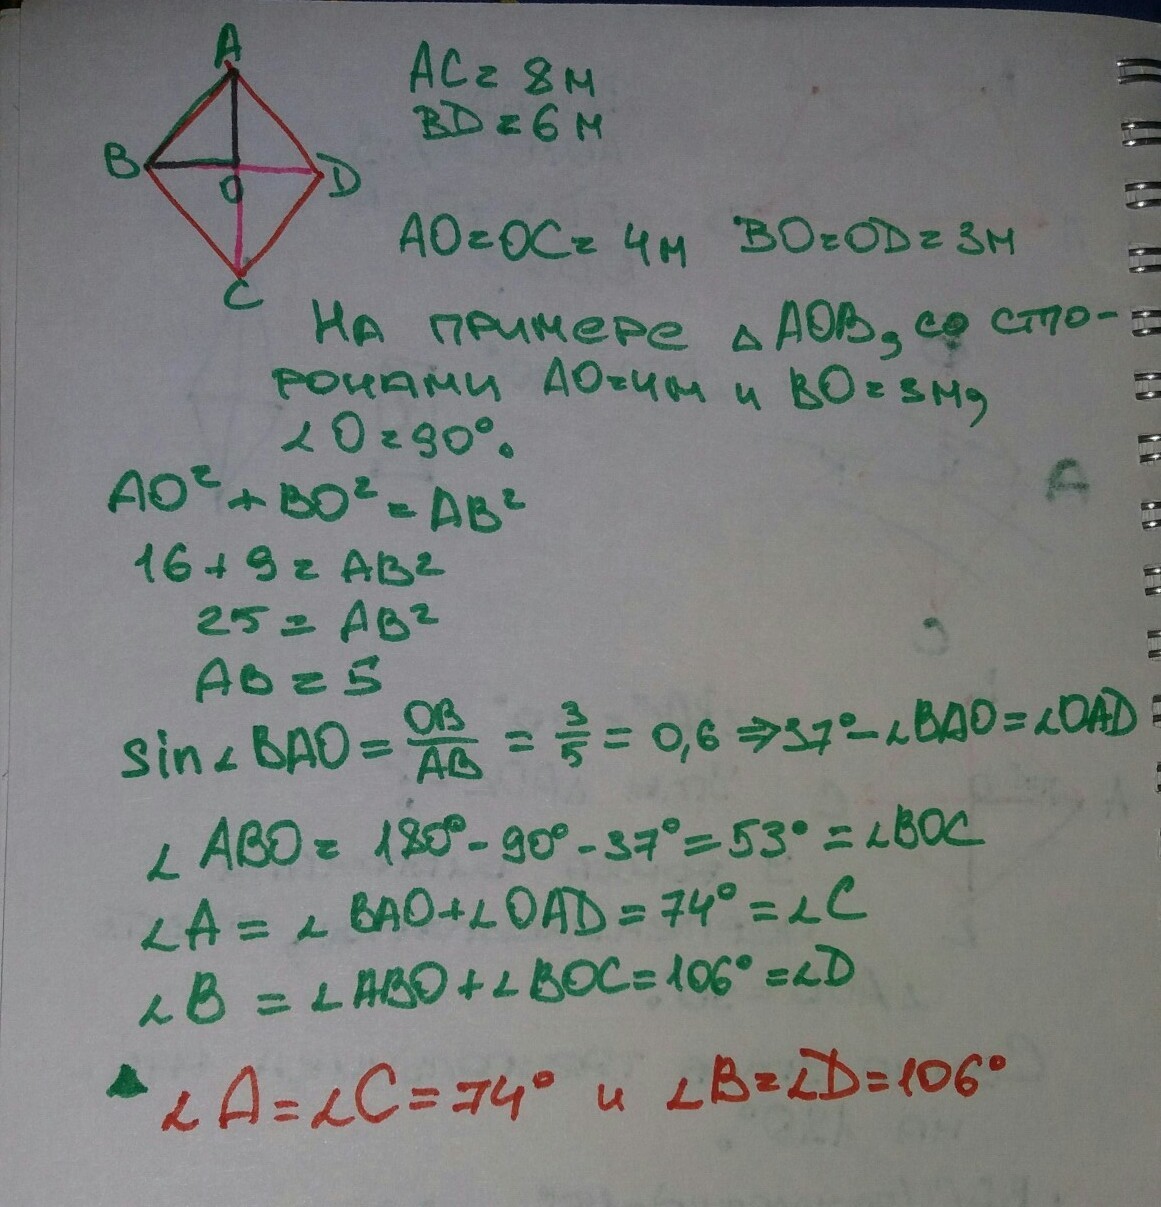 A
B
O
D
C
AC = 8 м
BD = 6 м
AO = OC = 4 м BO = OD = 3 м
На примере △ AOB, со сто-
ронами AO = 4 м и BO = 3 м,
∠O = 90°.
AO² + BO² = AB²
16 + 9 = AB²
25 = AB²
AB = 5
sin∠BAO = OB/AB = 3/5 = 0,6 ⇒ 37° - ∠BAO = ∠OAD
∠ABO = 180° - 90° - 37° = 53° = ∠BOC
∠A = ∠BAO + ∠OAD = 74° = ∠C
∠B = ∠ABO + ∠BOC = 106° = ∠D
∠A = ∠C = 74° и ∠B = ∠D = 106°